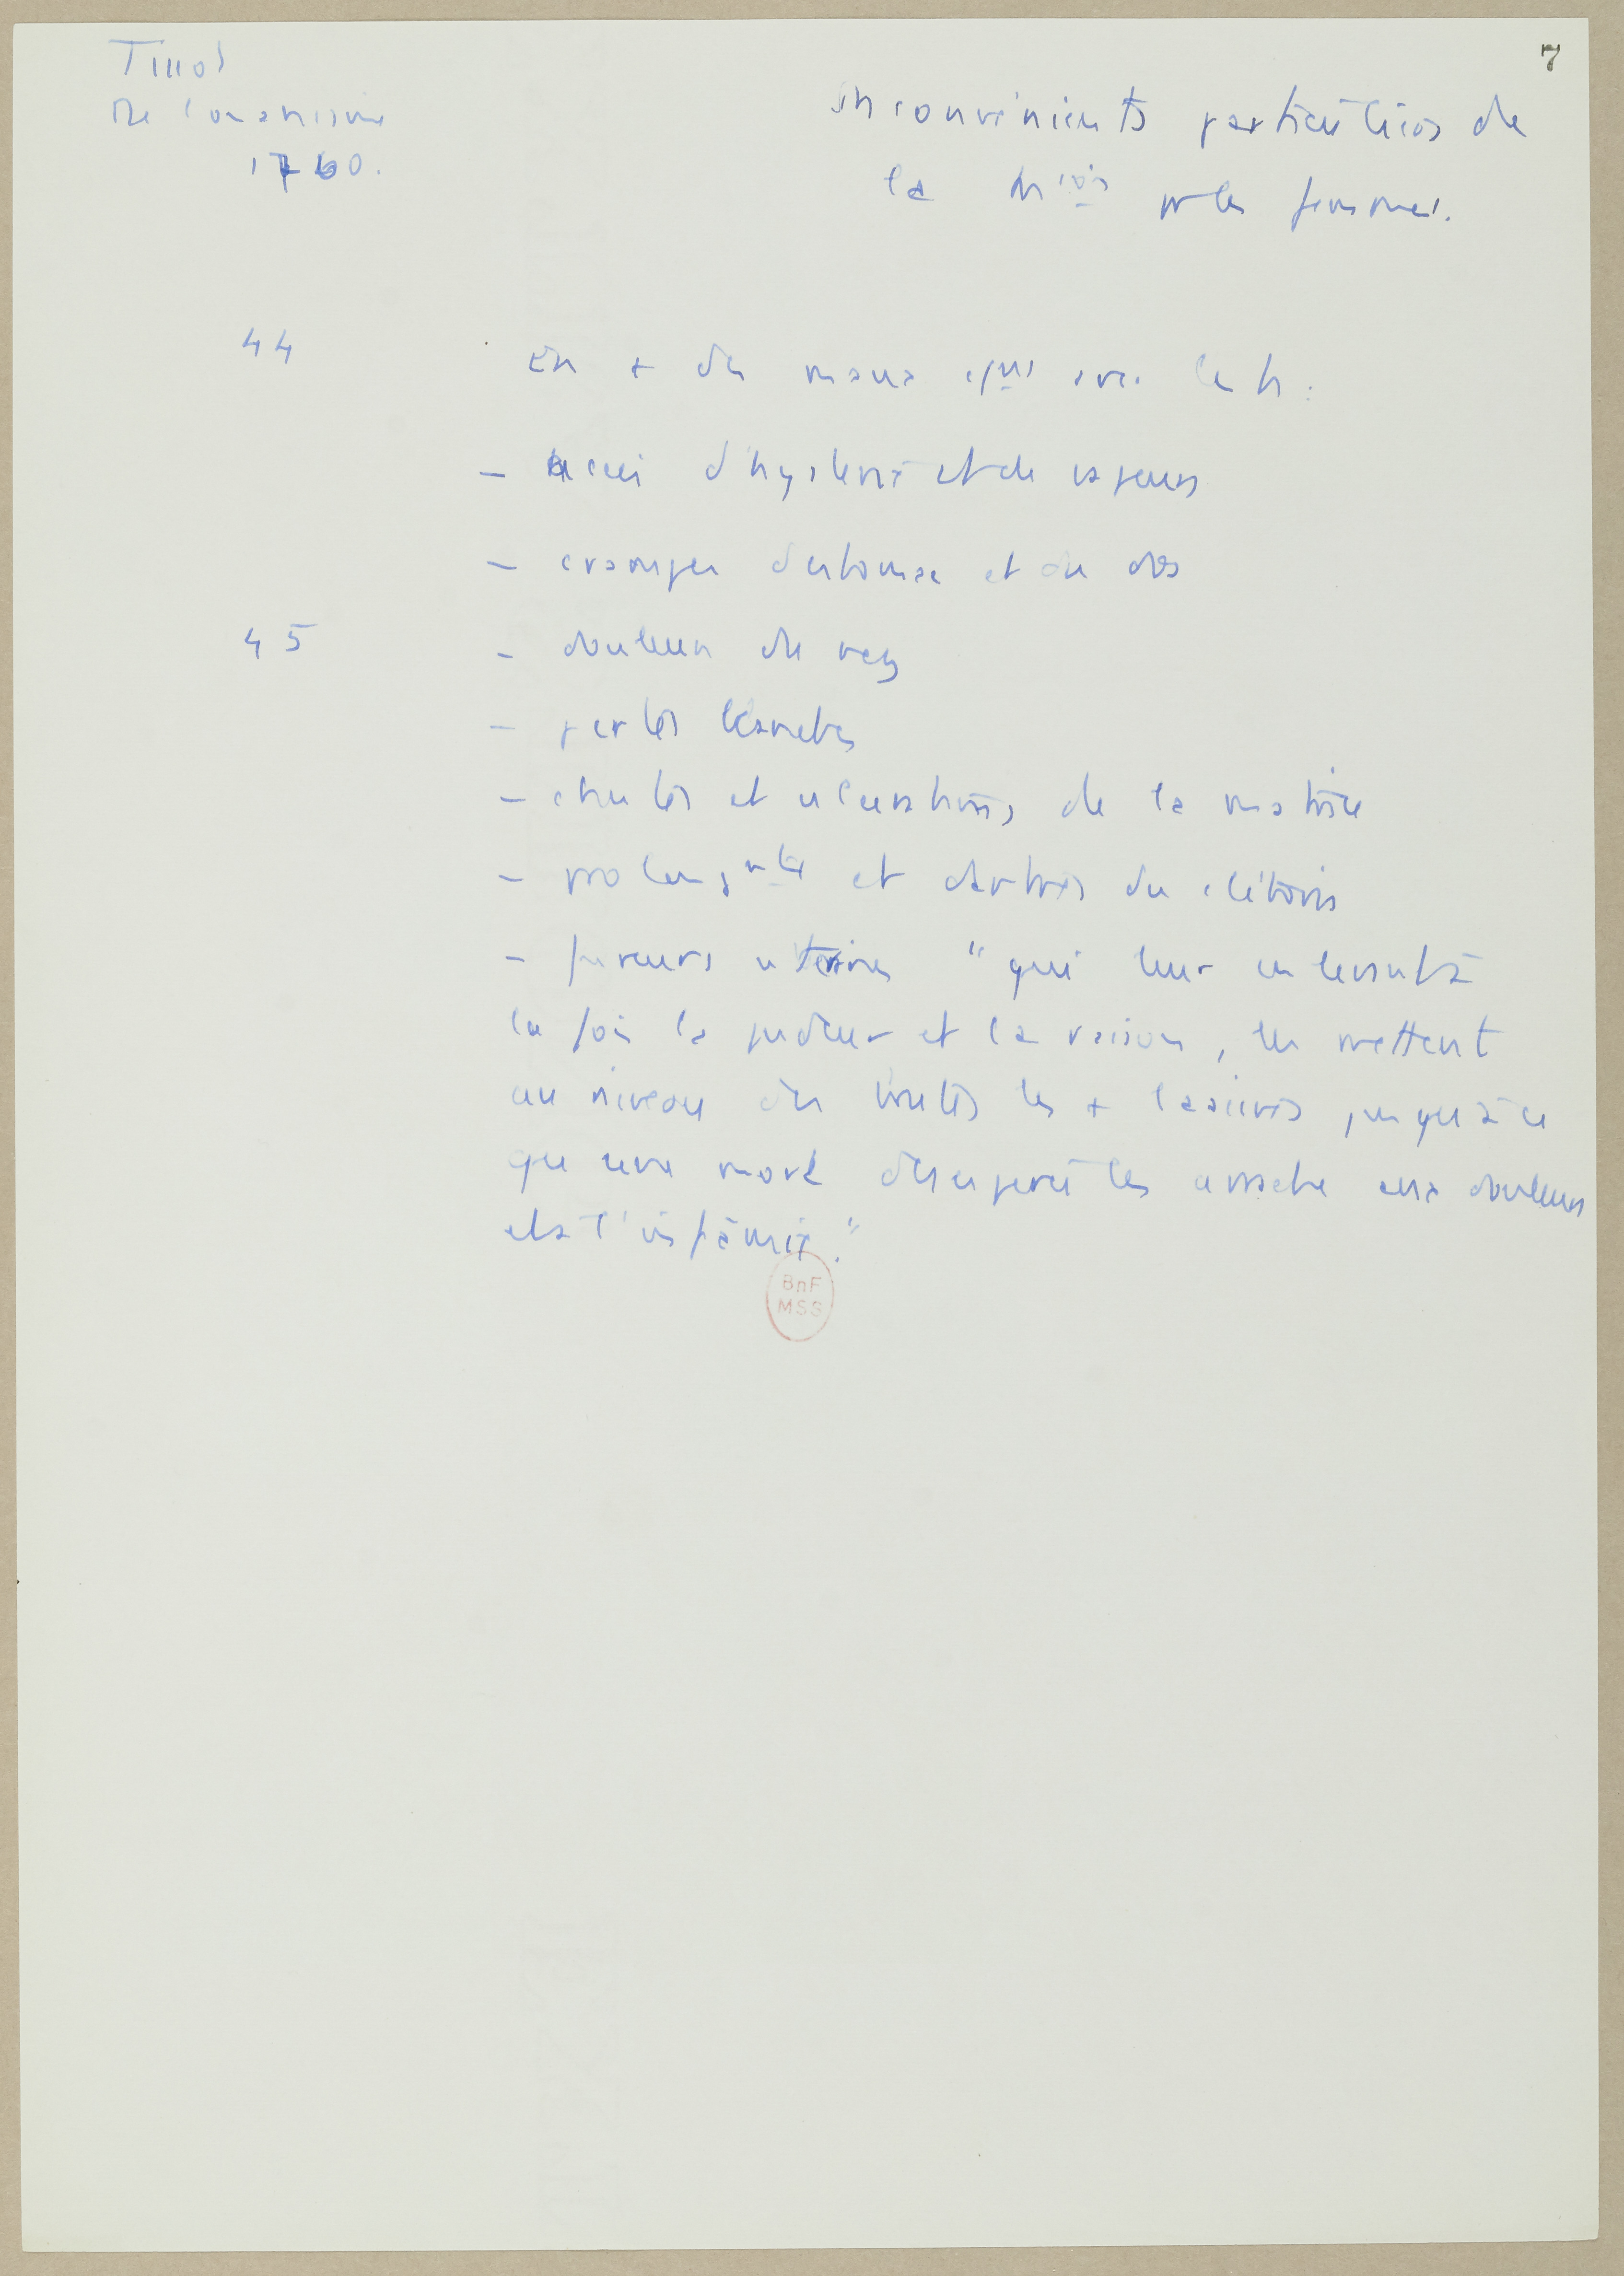 7
Tissot
De l'onanisme
1760.
Inconvénients particuliers de
la mion pr les femmes.
44
En + des maux cuns avec les h :
- accès d'hystérie et de vapeurs
- crampes d'estomac et du dos
45
- douleurs de nez
- pertes blanches
- chutes et ulcérations de la matrice
- prolongmts et dartres du clitoris
- fureurs utérines "qui leur enlevant à
la fois la pudeur et la raison, les mettent
au niveau des brutes les + lascives jusqu'à ce
qu'une mort désespérée les arrache aux douleurs
et à l'infamie."
BnF
MSS